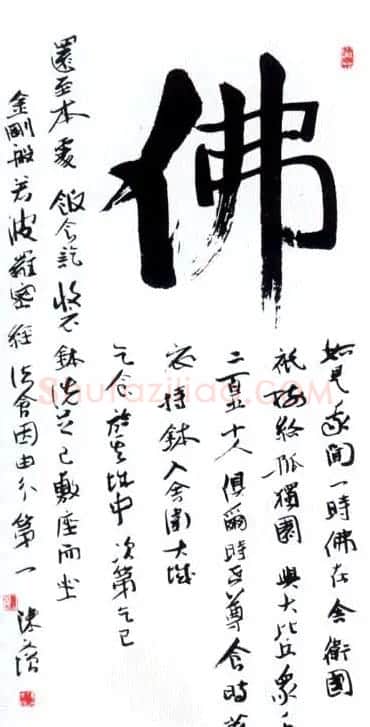 佛
如是我聞一時佛在舍衛國
祇樹給孤獨園與大比丘眾
二百五十人俱爾時世尊食時著
衣持鉢入舍衛大城
乞食於其城中次第乞已
還至本處飯食訖收衣鉢洗足已敷座而坐
金剛般若波羅蜜經法會因由分第一
Shufaziliao.com